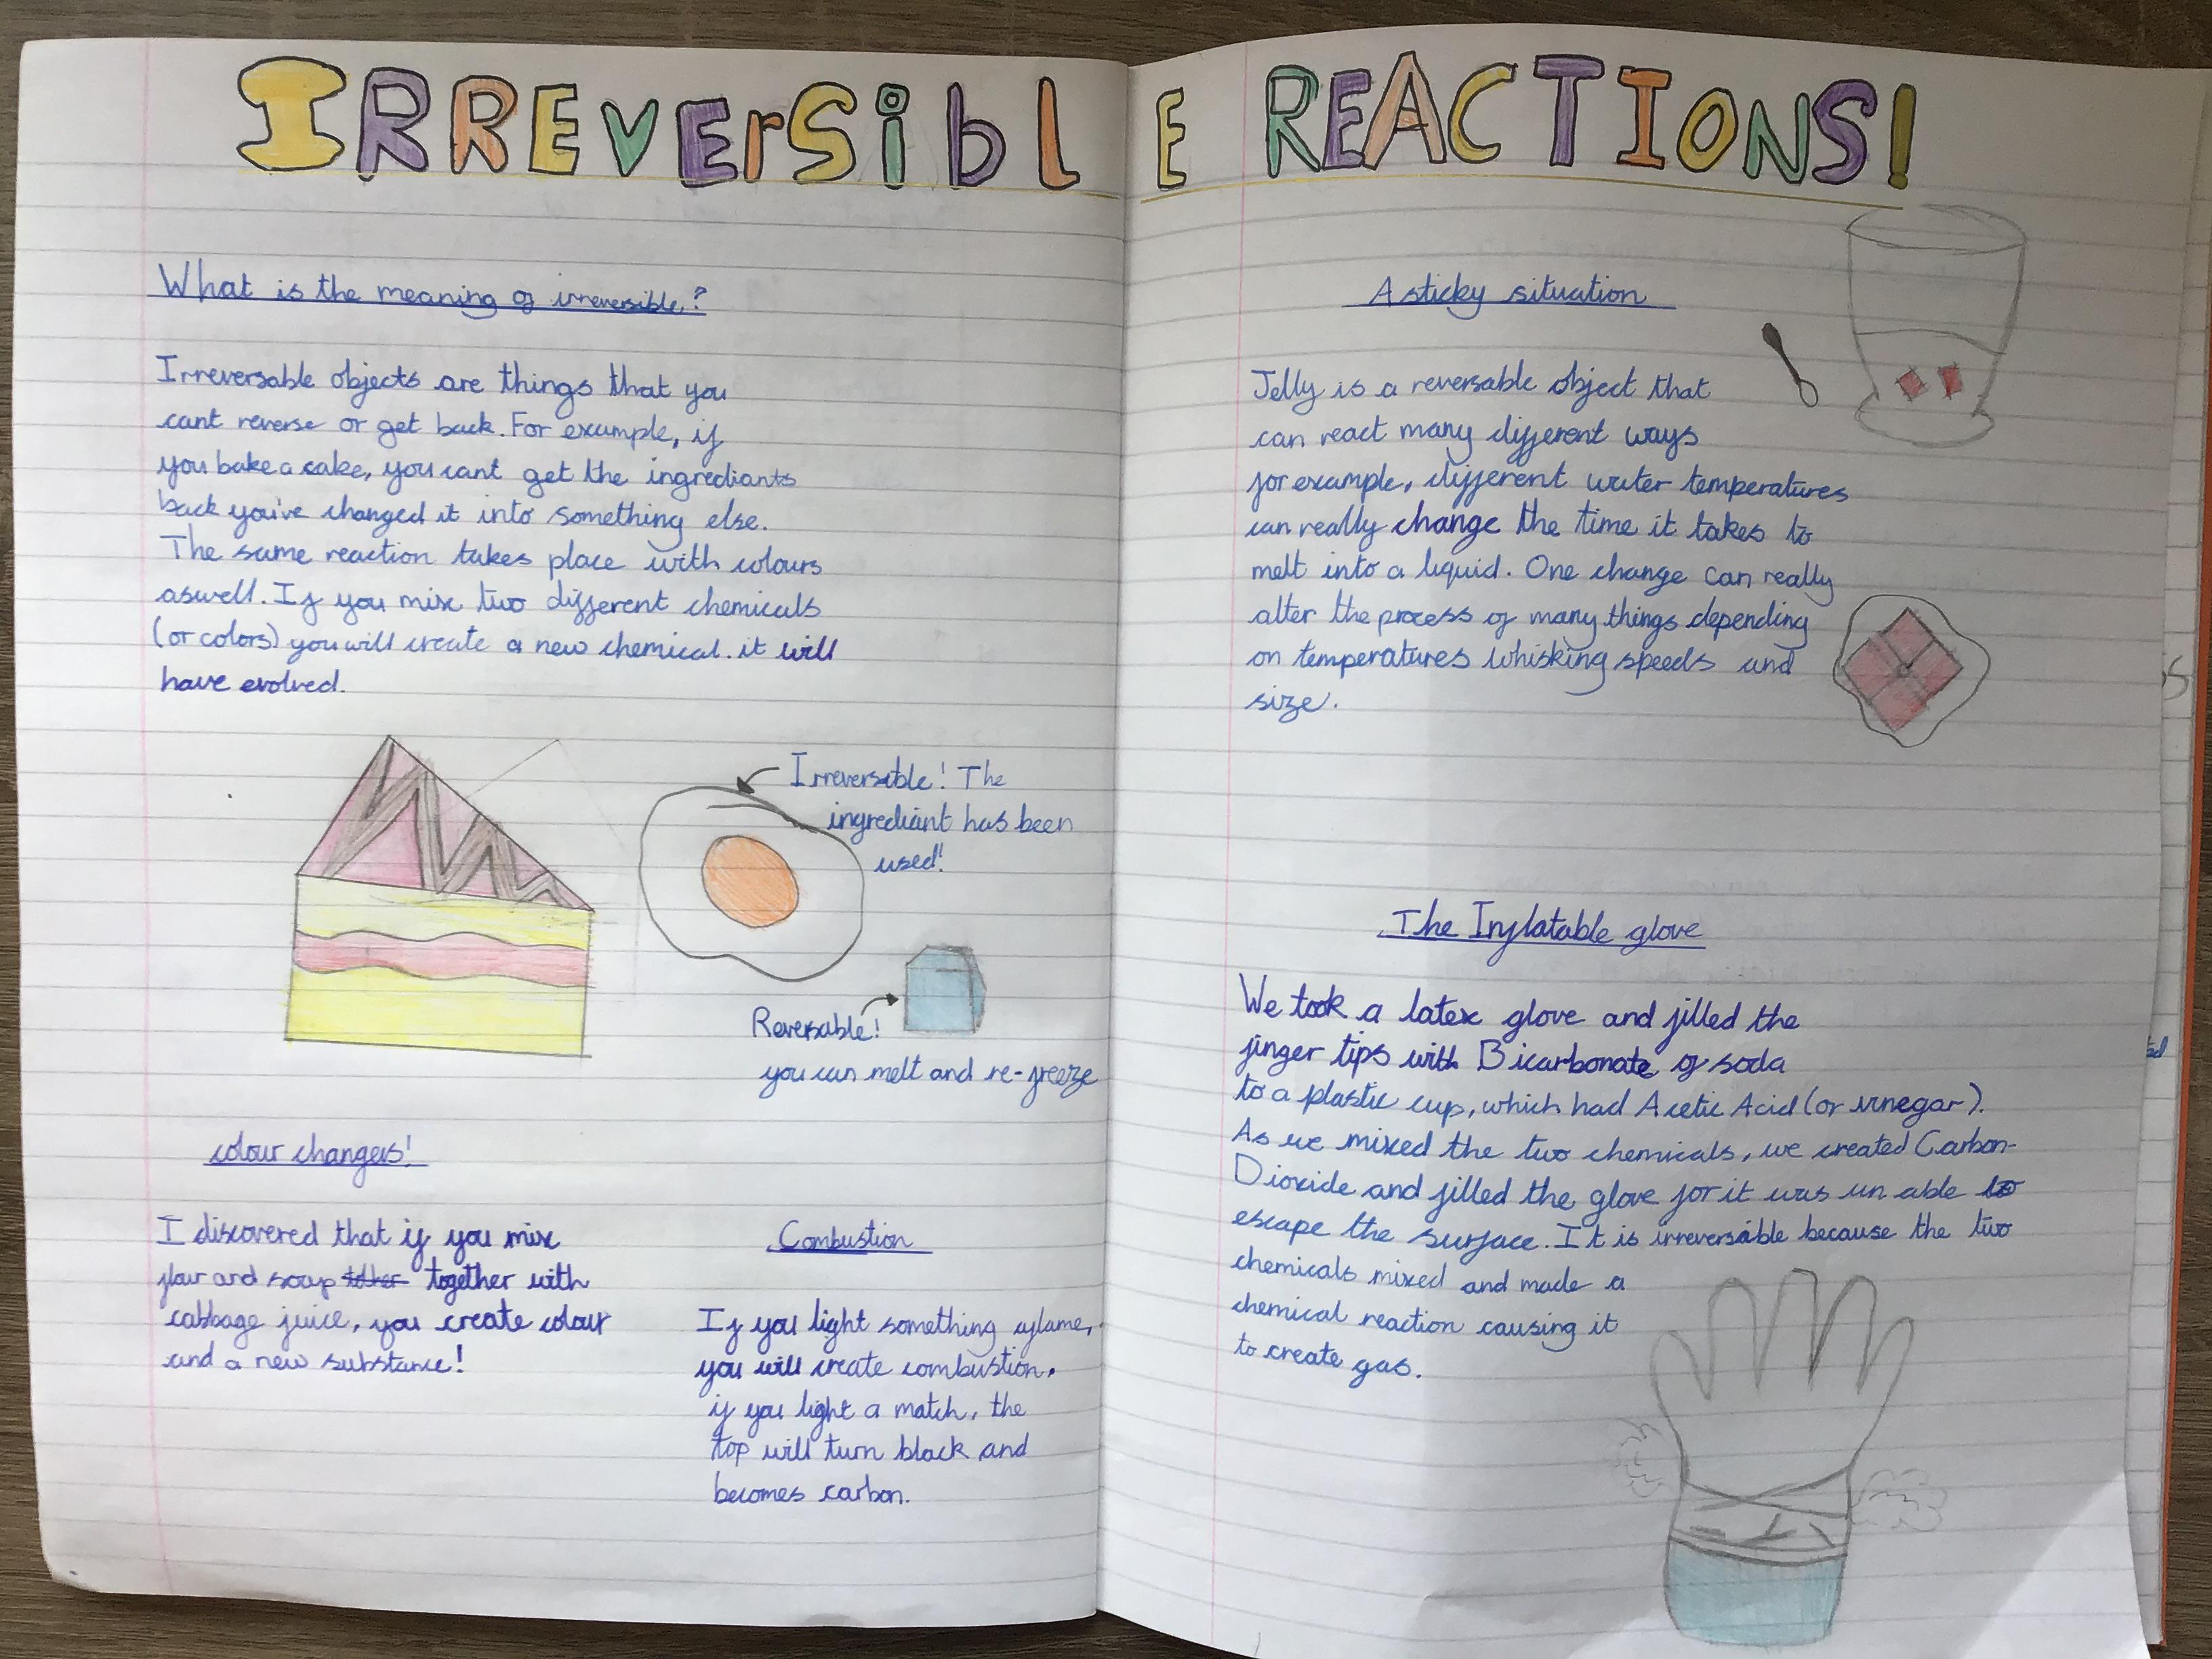 IRREVErSiblE REACTIONS!
What is the meaning of irreversible?
Irreversable objects are things that you
cant reverse or get back. For example, if
you bake a cake, you cant get the ingrediants
back you've changed it into something else.
The same reaction takes place with colours
aswell. If you mix two different chemicals
(or colors) you will create a new chemical. it will
have evolved.
Irreversable! The
ingrediant has been
used!
Reversable!
you can melt and re-freeze
colour changers!
I discovered that if you mix
flour and soap together with
cabbage juice, you create colour
and a new substance!
Combustion
If you light something aflame,
you will create combustion.
if you light a match, the
top will turn black and
becomes carbon.
A sticky situation
Jelly is a reversable object that
can react many different ways
for example, different water temperatures
can really change the time it takes to
melt into a liquid. One change can really
alter the process of many things depending
on temperatures whisking speeds and
size.
The Inflatable glove
We took a latex glove and filled the
finger tips with Bicarbonate of soda
to a plastic cup, which had Acetic Acid (or vinegar).
As we mixed the two chemicals, we created Carbon-
Dioxide and filled the glove for it was un able to
escape the surface. It is irreversable because the two
chemicals mixed and made a
chemical reaction causing it
to create gas.